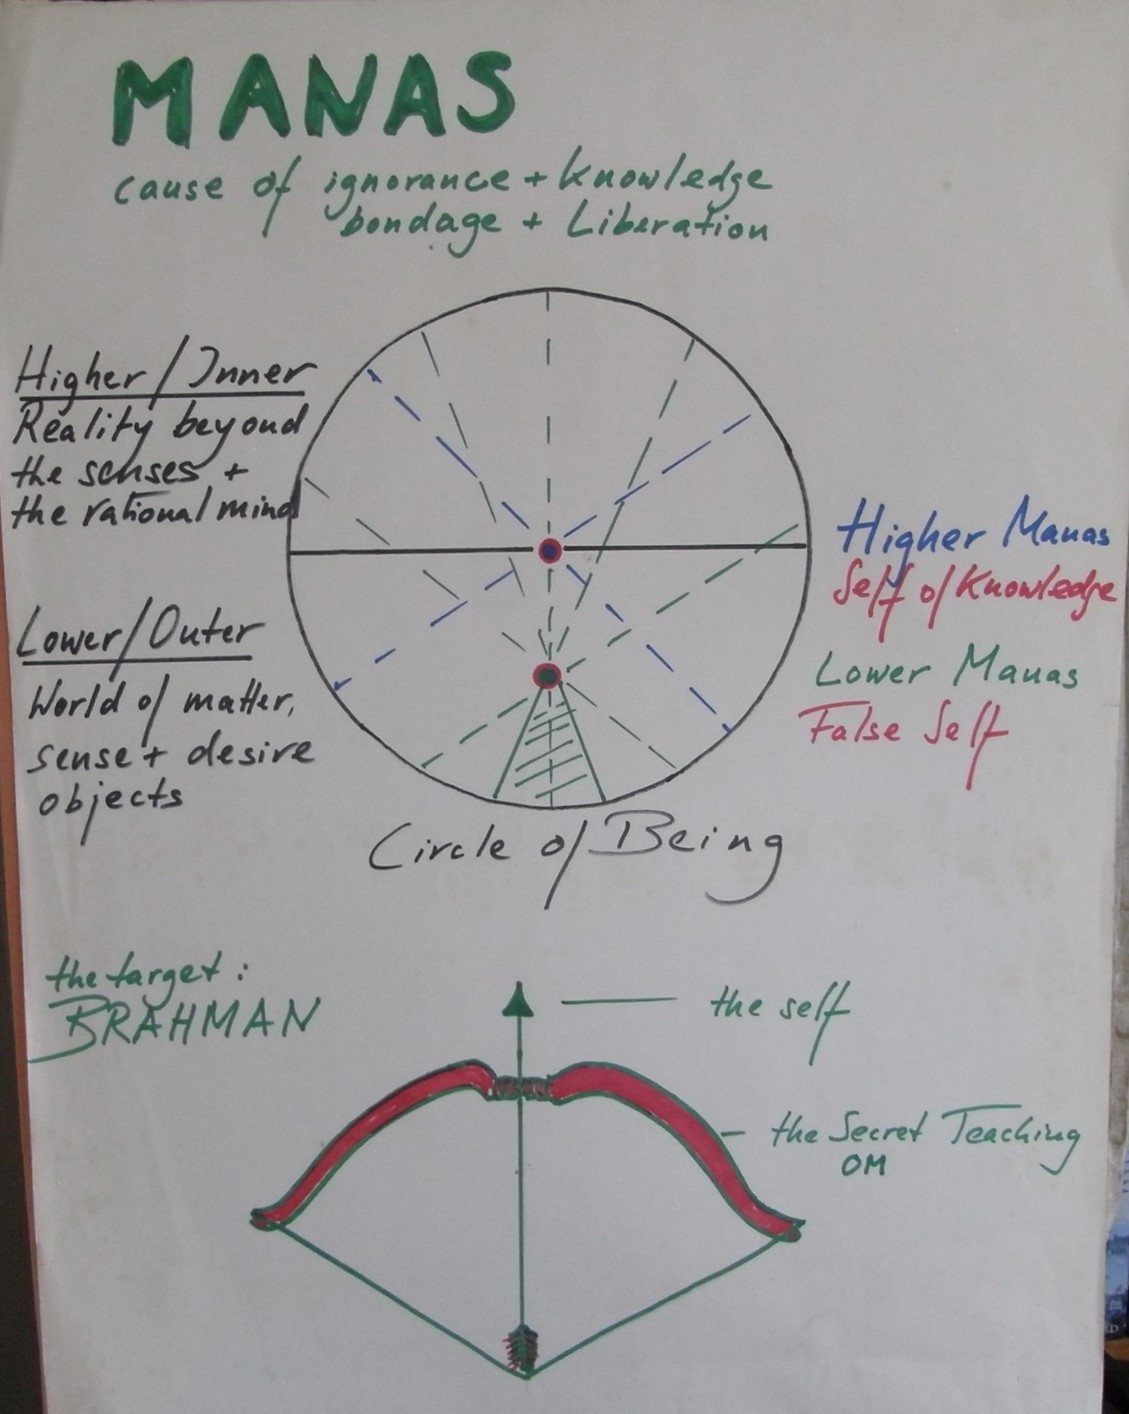 MANAS
cause of ignorance + knowledge
bondage + Liberation
Higher / Inner
Reality beyond
the senses +
the rational mind
Lower/Outer
World of matter,
sense + desire
objects
Higher Manas
Self of Knowledge
Lower Manas
False Self
Circle of Being
the target:
BRAHMAN
the self
the Secret Teaching
OM